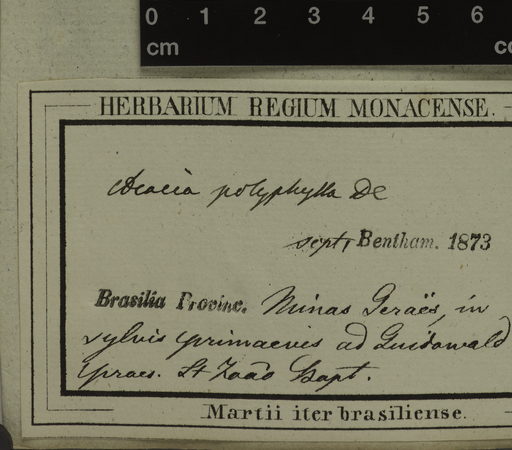 0 1 2 3 4 5 6
cm
HERBARIUM REGIUM MONACENSE.
Acacia polyphylla DC
Bentham. 1873
Brasilia Provinc. Minas Geraës, in
sylvis primaevis ad
praes. St João Bapt.
Martii iter brasiliense.